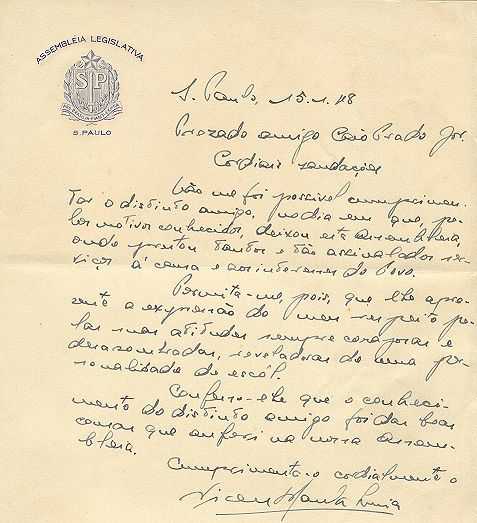 ASSEMBLEIA LEGISLATIVA
SP
S. PAULO
S. Paulo, 15.1.48
Prezado amigo Caio Prado Jor.
Cordiais saudações
Não me foi possivel cumprimen-
tar o distinto amigo, no dia em que, pe-
los motivos conhecidos, deixou esta Assembleia,
onde prestou tantos e tão assinalados ser-
viços á causa e aos interesses do Povo.
Permita-me, pois, que lhe apre-
sente a expressão do meu respeito pe-
las suas atitudes sempre corajosas e
desassombradas, reveladoras de uma per-
sonalidade de escól.
Confesso-lhe que o conheci-
mento do distinto amigo foi das boas
cousas que auferi na nossa Assem-
bleia.
Cumprimenta-o cordialmente o